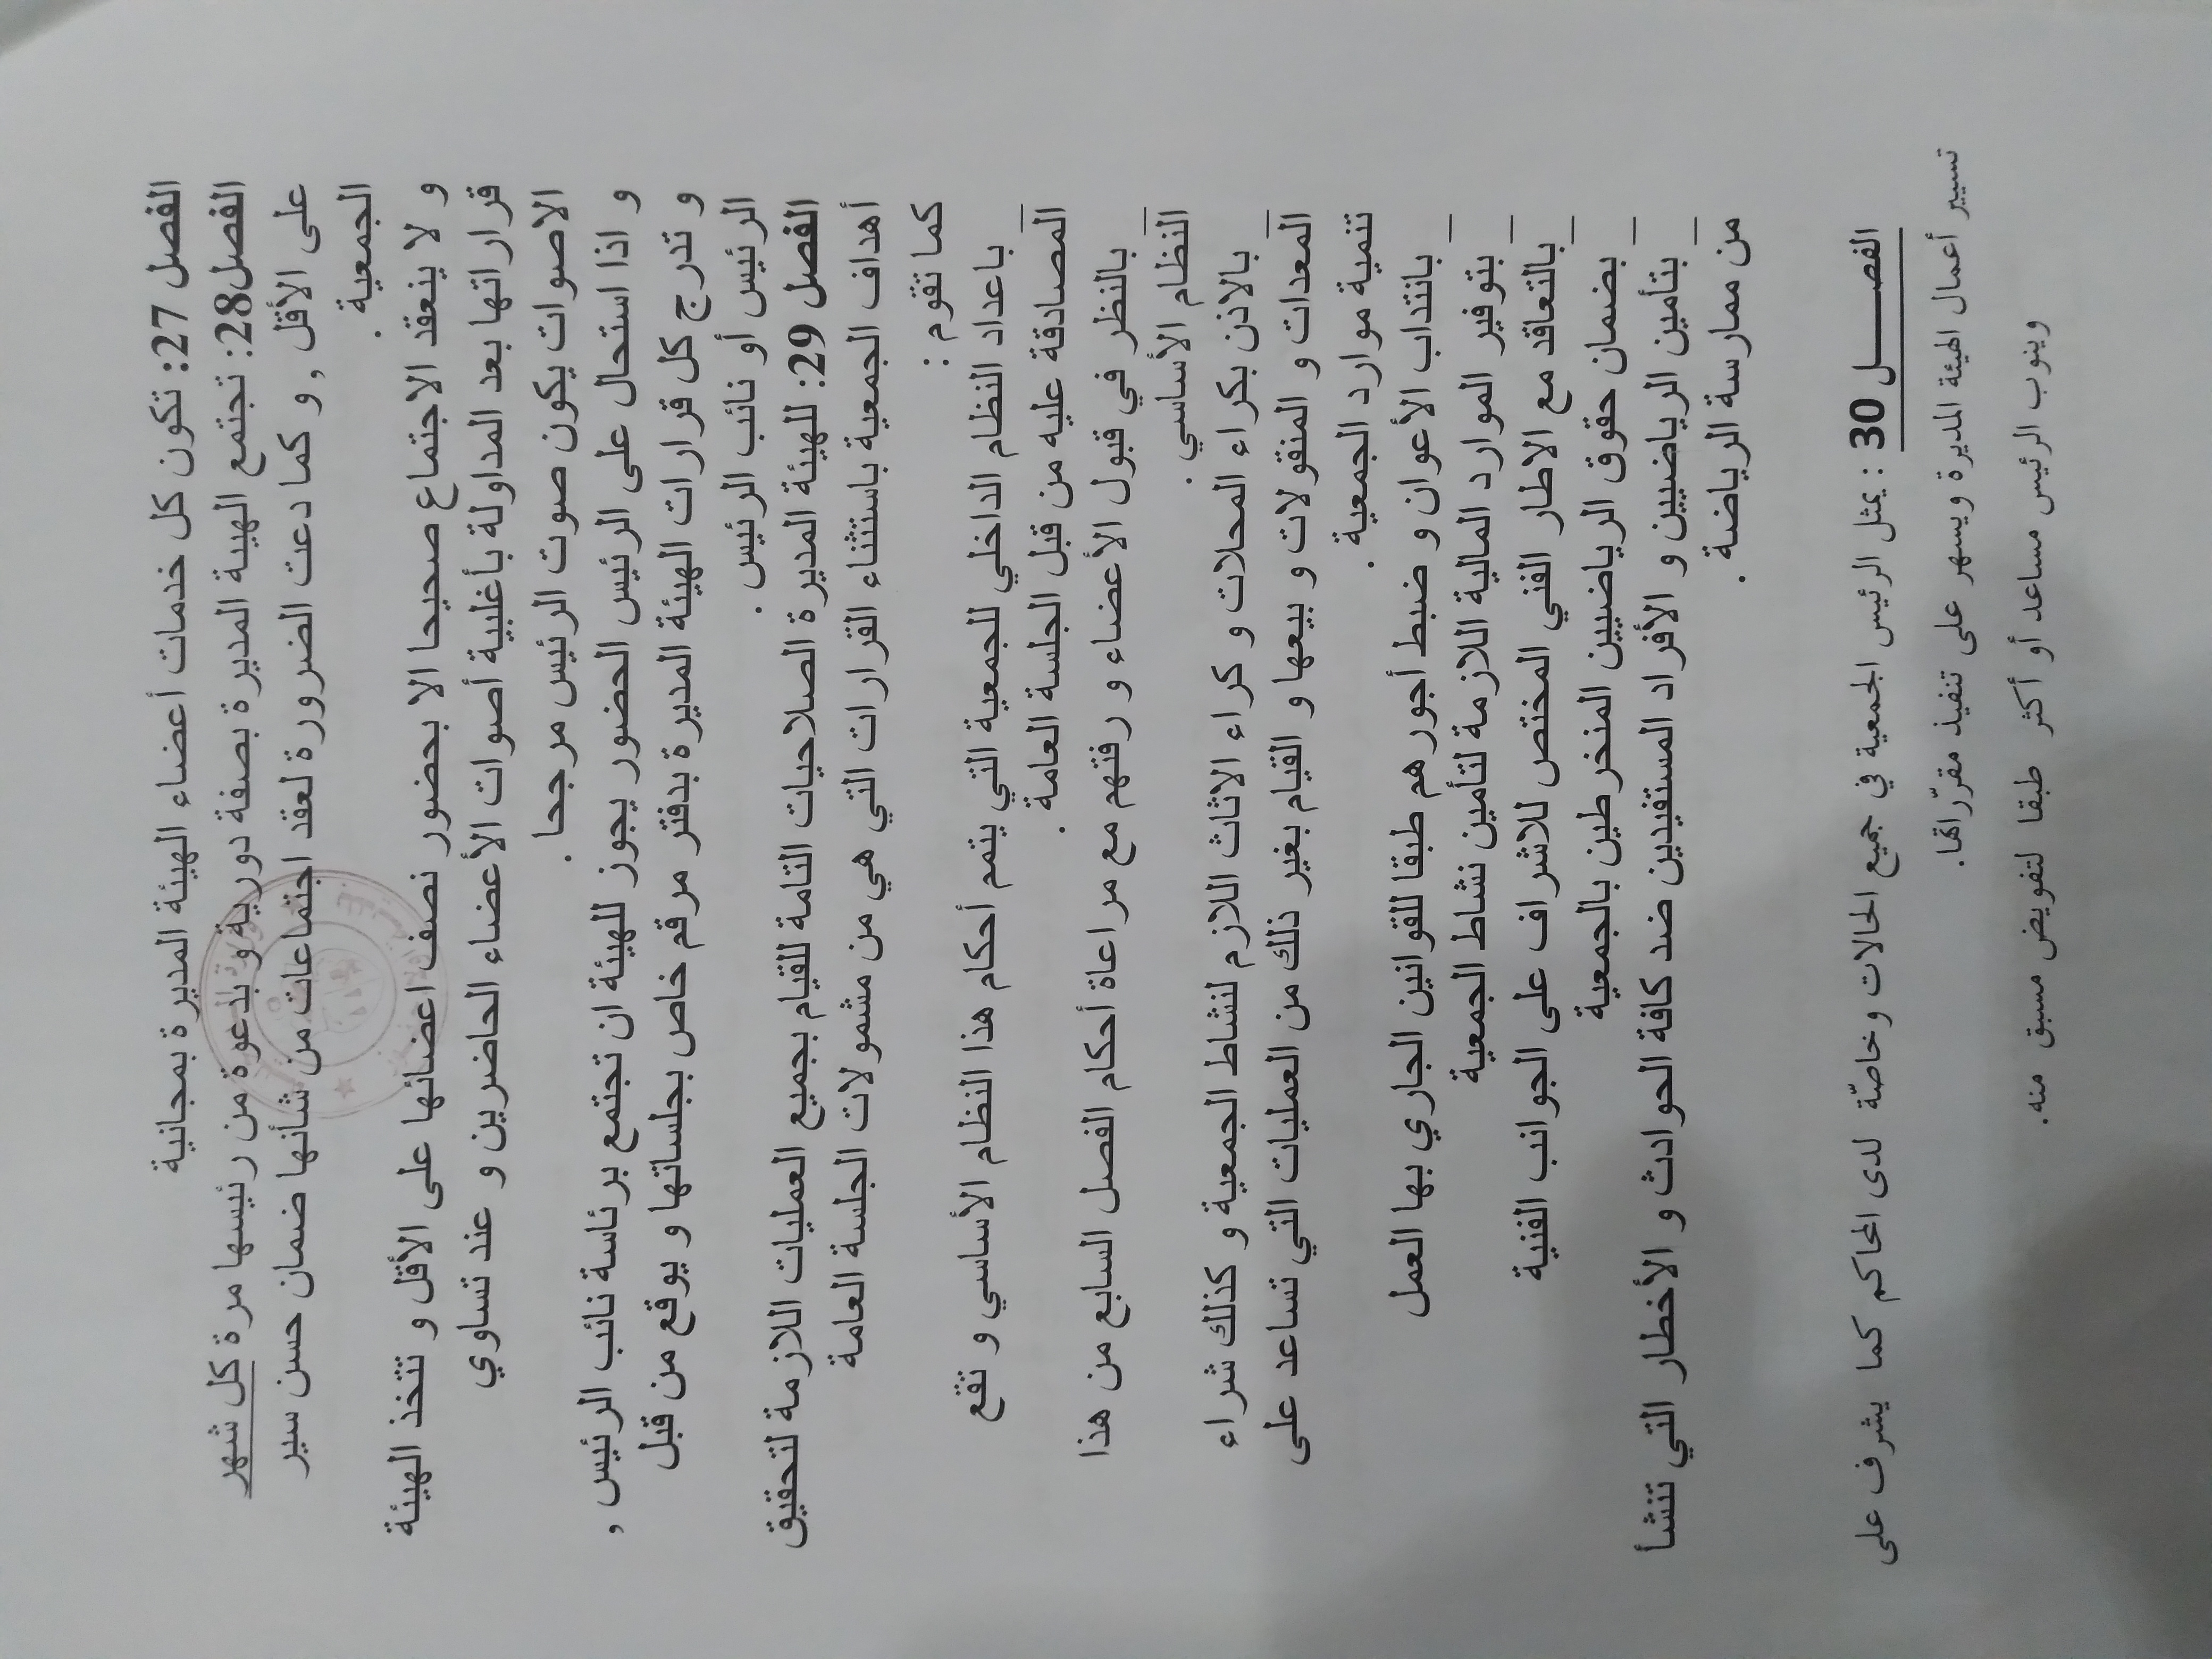 الفصل 27: تكون كل خدمات أعضاء الهيئة المديرة بمجانية
الفصل28: تجتمع الهيئة المديرة بصفة دورية و بدعوة من رئيسها مرة كل شهر
على الأقل , و كما دعت الضرورة لعقد اجتماعات من شأنها ضمان حسن سير
الجمعية .
و لا ينعقد الاجتماع صحيحا الا بحضور نصف اعضائها على الأقل و تتخذ الهيئة
قراراتها بعد المداولة بأغلبية أصوات الأعضاء الحاضرين و عند تساوي
الاصوات يكون صوت الرئيس مرجحا .
و اذا استحال على الرئيس الحضور يجوز للهيئة ان تجتمع برئاسة نائب الرئيس ,
و تدرج كل قرارات الهيئة المديرة بدفتر مرقم خاص بجلساتها و يوقع من قبل
الرئيس أو نائب الرئيس .
الفصل 29: للهيئة المديرة الصلاحيات التامة للقيام بجميع العمليات اللازمة لتحقيق
أهداف الجمعية باستثناء القرارات التي هي من مشمولات الجلسة العامة
كما تقوم :
_ باعداد النظام الداخلي للجمعية التي يتمم أحكام هذا النظام الأساسي و تقع
المصادقة عليه من قبل الجلسة العامة .
_ بالنظر في قبول الأعضاء و رفتهم مع مراعاة أحكام الفصل السابع من هذا
النظام الأساسي .
_ بالاذن بكراء المحلات و كراء الاثاث اللازم لنشاط الجمعية و كذلك شراء
المعدات و المنقولات و بيعها و القيام بغير ذلك من العمليات التي تساعد على
تنمية موارد الجمعية .
_ بانتداب الأعوان و ضبط أجورهم طبقا للقوانين الجاري بها العمل
_ بتوفير الموارد المالية اللازمة لتأمين نشاط الجمعية
_ بالتعاقد مع الاطار الفني المختص للاشراف على الجوانب الفنية
_ بضمان حقوق الرياضيين المنخرطين بالجمعية
_ بتأمين الرياضيين و الأفراد المستفيدين ضد كافة الحوادث و الأخطار التي تنشأ
من ممارسة الرياضة .
الفصــــــل 30 : يمثل الرئيس الجمعية في جميع الحالات وخاصّة لدى المحاكم كما يشرف على
تسيير أعمال الهيئة المديرة ويسهر على تنفيذ مقرّراتها.
وينوب الرئيس مساعد أو أكثر طبقا لتفويض مسبق منه.